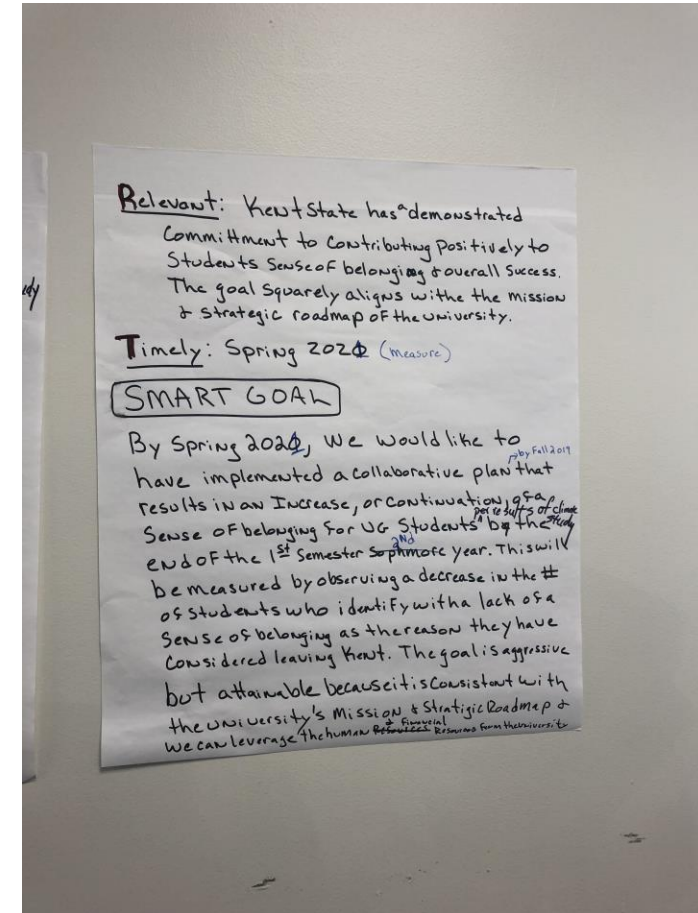 dy
Relevant: Kent State has a demonstrated
Committment to contributing positively to
Students Sense of belonging & overall Success.
The goal Squarely aligns withe the mission
& strategic roadmap of the university.
Timely: Spring 2021 (measure)
SMART GOAL
By Spring 2021, We would like to
by Fall 2019
have implemented a collaborative plan that
results in an Increase, or continuation, of a
per results of climate study
Sense of belonging for UG Students by the
2nd
end of the 1st Semester Sophmore year. This will
be measured by observing a decrease in the #
of students who identify with a lack of a
Sense of belonging as the reason they have
Considered leaving Kent. The goal is aggressive
but attainable because it is Consistent with
the university's Mission & Stratigic Roadmap &
& financial
we can leverage the human Resources Resources form the university